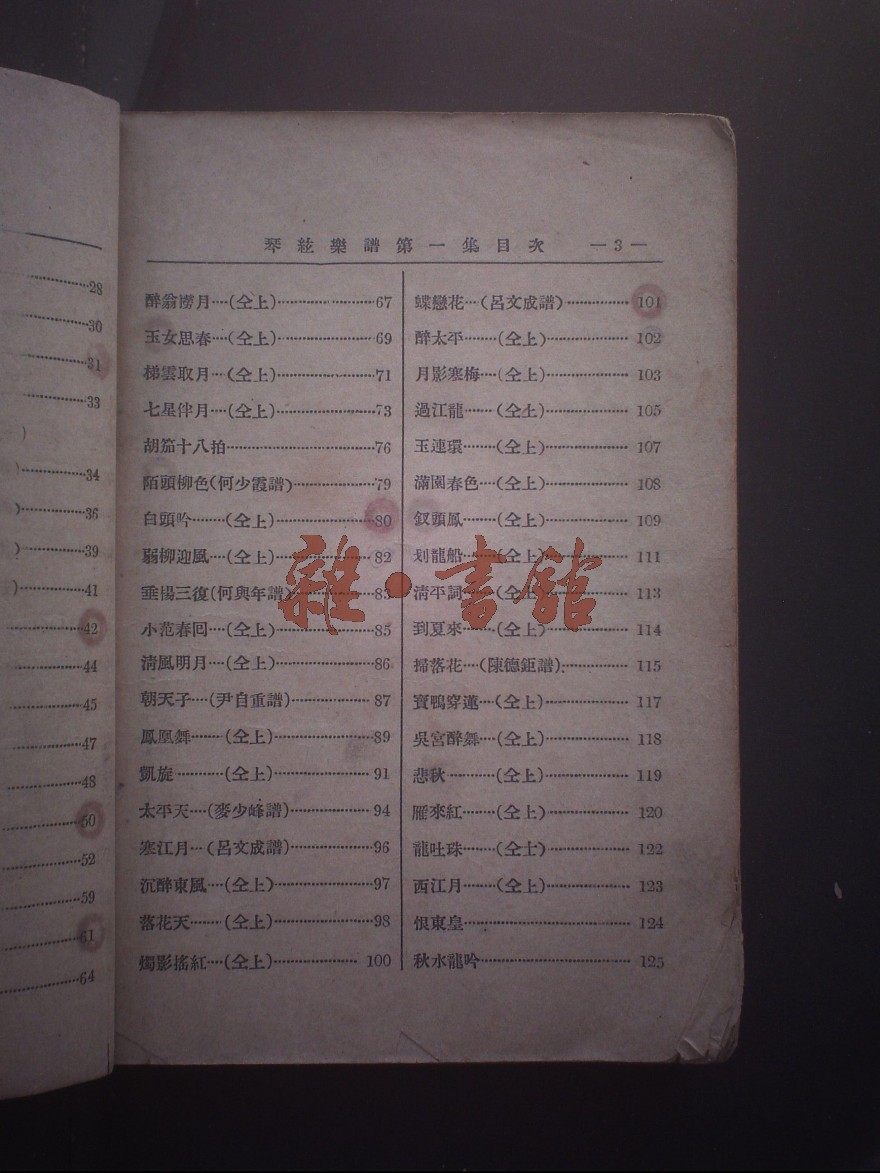 28
30
31
33
)
)34
)36
)39
)41
42
44
45
47
48
50
52
59
61
64
琴絃樂譜第一集目次 —3—
醉翁撈月····(仝上)························67
玉女思春····(仝上)····················69
梯雲取月····(仝上)····················71
七星伴月····(仝上)····················73
胡笳十八拍····························76
陌頭柳色(何少霞譜)················79
白頭吟·······(仝上)····················80
弱柳迎風····(仝上)····················82
垂楊三復(何與年譜)················83
小范春回····(仝上)····················85
清風明月····(仝上)····················86
朝天子····(尹自重譜)················87
鳳凰舞·······(仝上)····················89
凱旋··········(仝上)····················91
太平天····(麥少峰譜)················94
寒江月····(呂文成譜)················96
沉醉東風····(仝上)····················97
落花天·······(仝上)····················98
燭影搖紅····(仝上)····················100
蝶戀花····(呂文成譜)················101
醉太平·······(仝上)····················102
月影寒梅····(仝上)····················103
過江龍·······(仝上)····················105
玉連環·······(仝上)····················107
滿園春色····(仝上)····················108
釵頭鳳·······(仝上)····················109
划龍船·······(仝上)····················111
清平詞·······(仝上)····················113
到夏來·······(仝上)····················114
掃落花····(陳德鉅譜)················115
寳鴨穿蓮····(仝上)····················117
吳宮醉舞····(仝上)····················118
悲秋··········(仝上)····················119
雁來紅·······(仝上)····················120
龍吐珠·······(仝上)····················122
西江月·······(仝上)····················123
恨東皇································124
秋水龍吟····························125
雜·書館